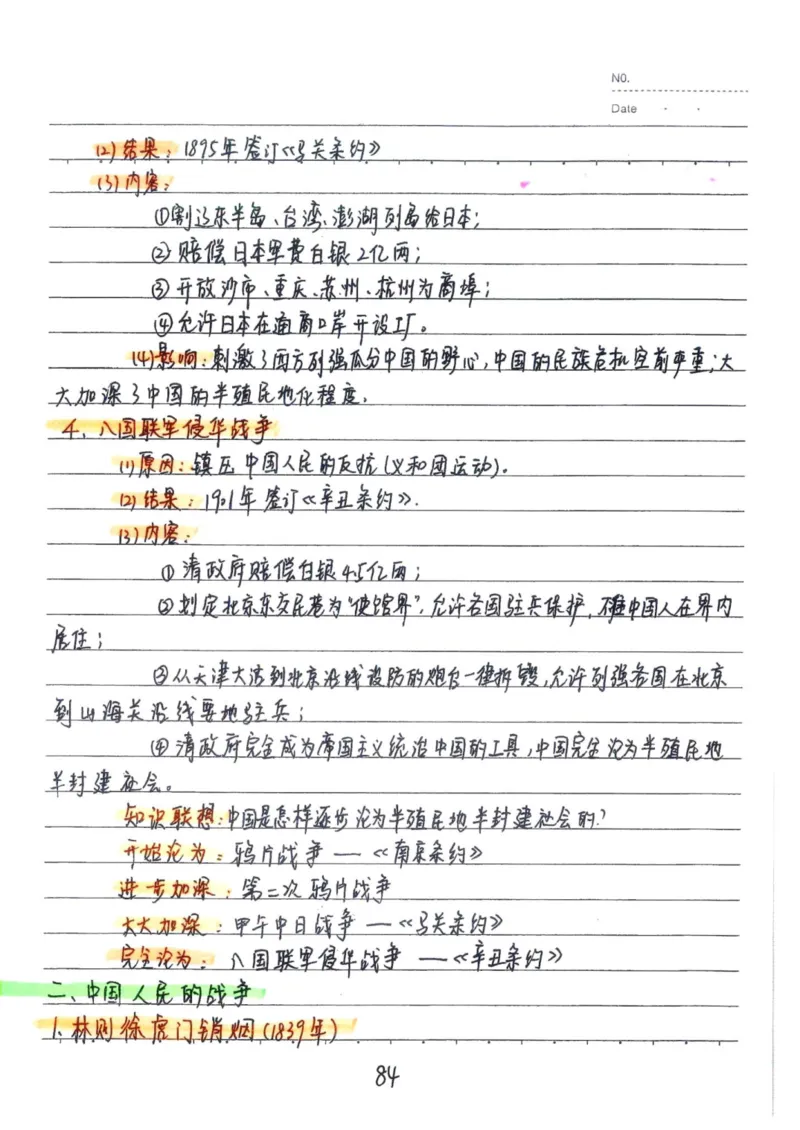 NO.
Date
(2)结果：1895年签订《马关条约》
(3)内容：
①割辽东半岛、台湾、澎湖列岛给日本；
②赔偿日本军费白银2亿两；
③开放沙市、重庆、苏州、杭州为商埠；
④允许日本在通商口岸开设工厂。
(4)影响：刺激了西方列强瓜分中国的野心，中国的民族危机空前严重；大
大加深了中国的半殖民地化程度。
4、八国联军侵华战争
(1)原因：镇压中国人民的反抗(义和团运动)。
(2)结果：1901年签订《辛丑条约》.
(3)内容：
①清政府赔偿白银4.5亿两；
②划定北京东交民巷为“使馆界”，允许各国驻兵保护，不准中国人在界内
居住；
③从天津大沽到北京沿线设防的炮台一律拆毁，允许列强各国在北京
到山海关沿线要地驻兵；
④清政府完全成为帝国主义统治中国的工具，中国完全沦为半殖民地
半封建社会。
知识联想：中国是怎样逐步沦为半殖民地半封建社会的？
开始沦为：鸦片战争 —《南京条约》
进一步加深：第二次鸦片战争
大大加深：甲午中日战争 —《马关条约》
完全沦为：八国联军侵华战争 —《辛丑条约》
二、中国人民的战争
1、林则徐虎门销烟(1839年)
84